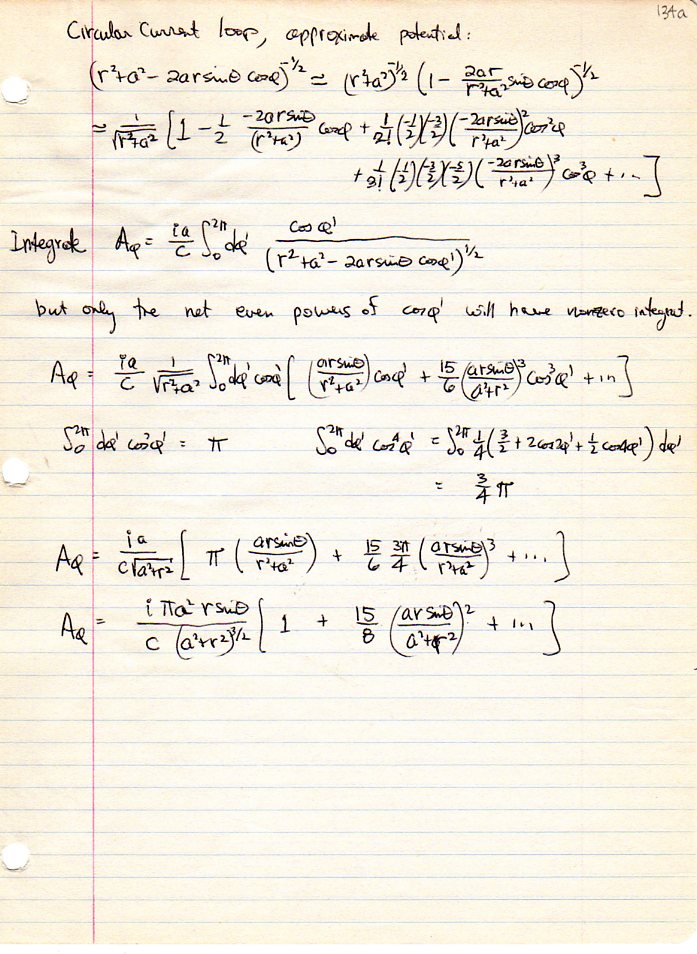 134a
Circular Current loop, approximate potential:
(r²+a² - 2ar sinθ cosφ)^(-1/2) ≃ (r²+a²)^(-1/2) (1 - 2ar/(r²+a²) sinθ cosφ)^(-1/2)
≃ 1/√(r²+a²) [ 1 - 1/2 (-2ar sinθ)/(r²+a²) cosφ + 1/2! (-1/2)(-3/2) (-2ar sinθ/(r²+a²))² cos²φ
+ 1/3! (-1/2)(-3/2)(-5/2) (-2ar sinθ/(r²+a²))³ cos³φ + ... ]
Integrate A_φ = ia/c ∫₀^2π dφ' cosφ' / (r²+a² - 2ar sinθ cosφ')^(1/2)
but only the net even powers of cosφ' will have nonzero integral.
A_φ = ia/c 1/√(r²+a²) ∫₀^2π dφ' cosφ' [ (ar sinθ/(r²+a²)) cosφ' + 15/6 (ar sinθ/(a²+r²))³ cos³φ' + ... ]
∫₀^2π dφ' cos²φ' = π ∫₀^2π dφ' cos⁴φ' = ∫₀^2π 1/4 (3/2 + 2cos2φ' + 1/2 cos4φ') dφ'
= 3/4 π
A_φ = ia/(c√(a²+r²)) [ π (ar sinθ/(r²+a²)) + 15/6 3π/4 (ar sinθ/(r²+a²))³ + ... ]
A_φ = iπa² r sinθ/(c (a²+r²)^(3/2)) [ 1 + 15/8 (ar sinθ/(a²+r²))² + ... ]